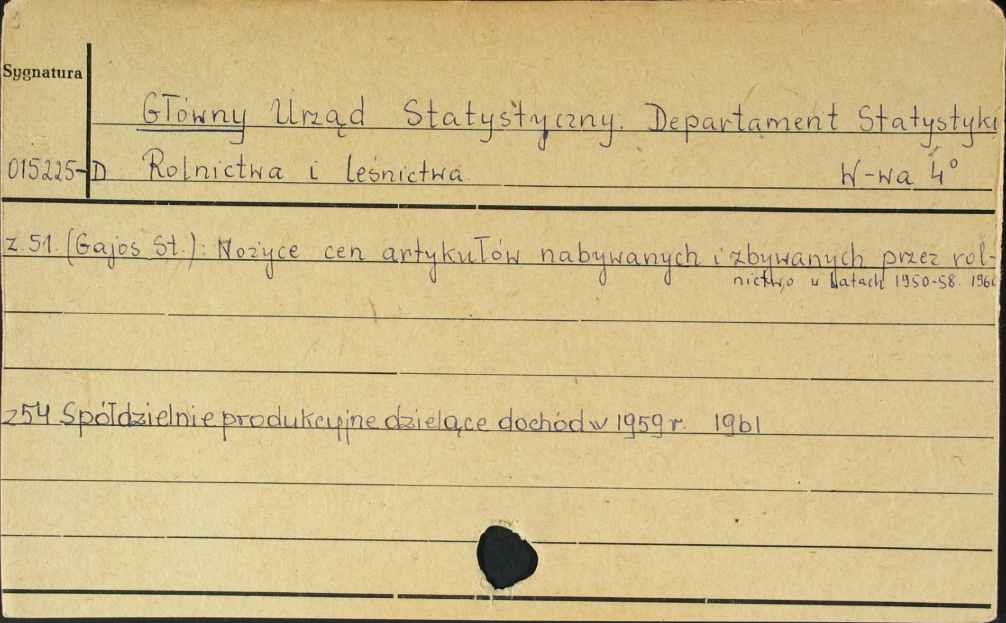 Sygnatura
Główny Urząd Statystyczny. Departament Statystyki
015225-D Rolnictwa i Leśnictwa. W-wa 4°
z. 51. (Gajos St.): Nożyce cen artykułów nabywanych i zbywanych przez rol-
nictwo w latach 1950-58. 1960
z 54 Spółdzielnie produkcyjne dzielące dochód w 1959 r. 1961